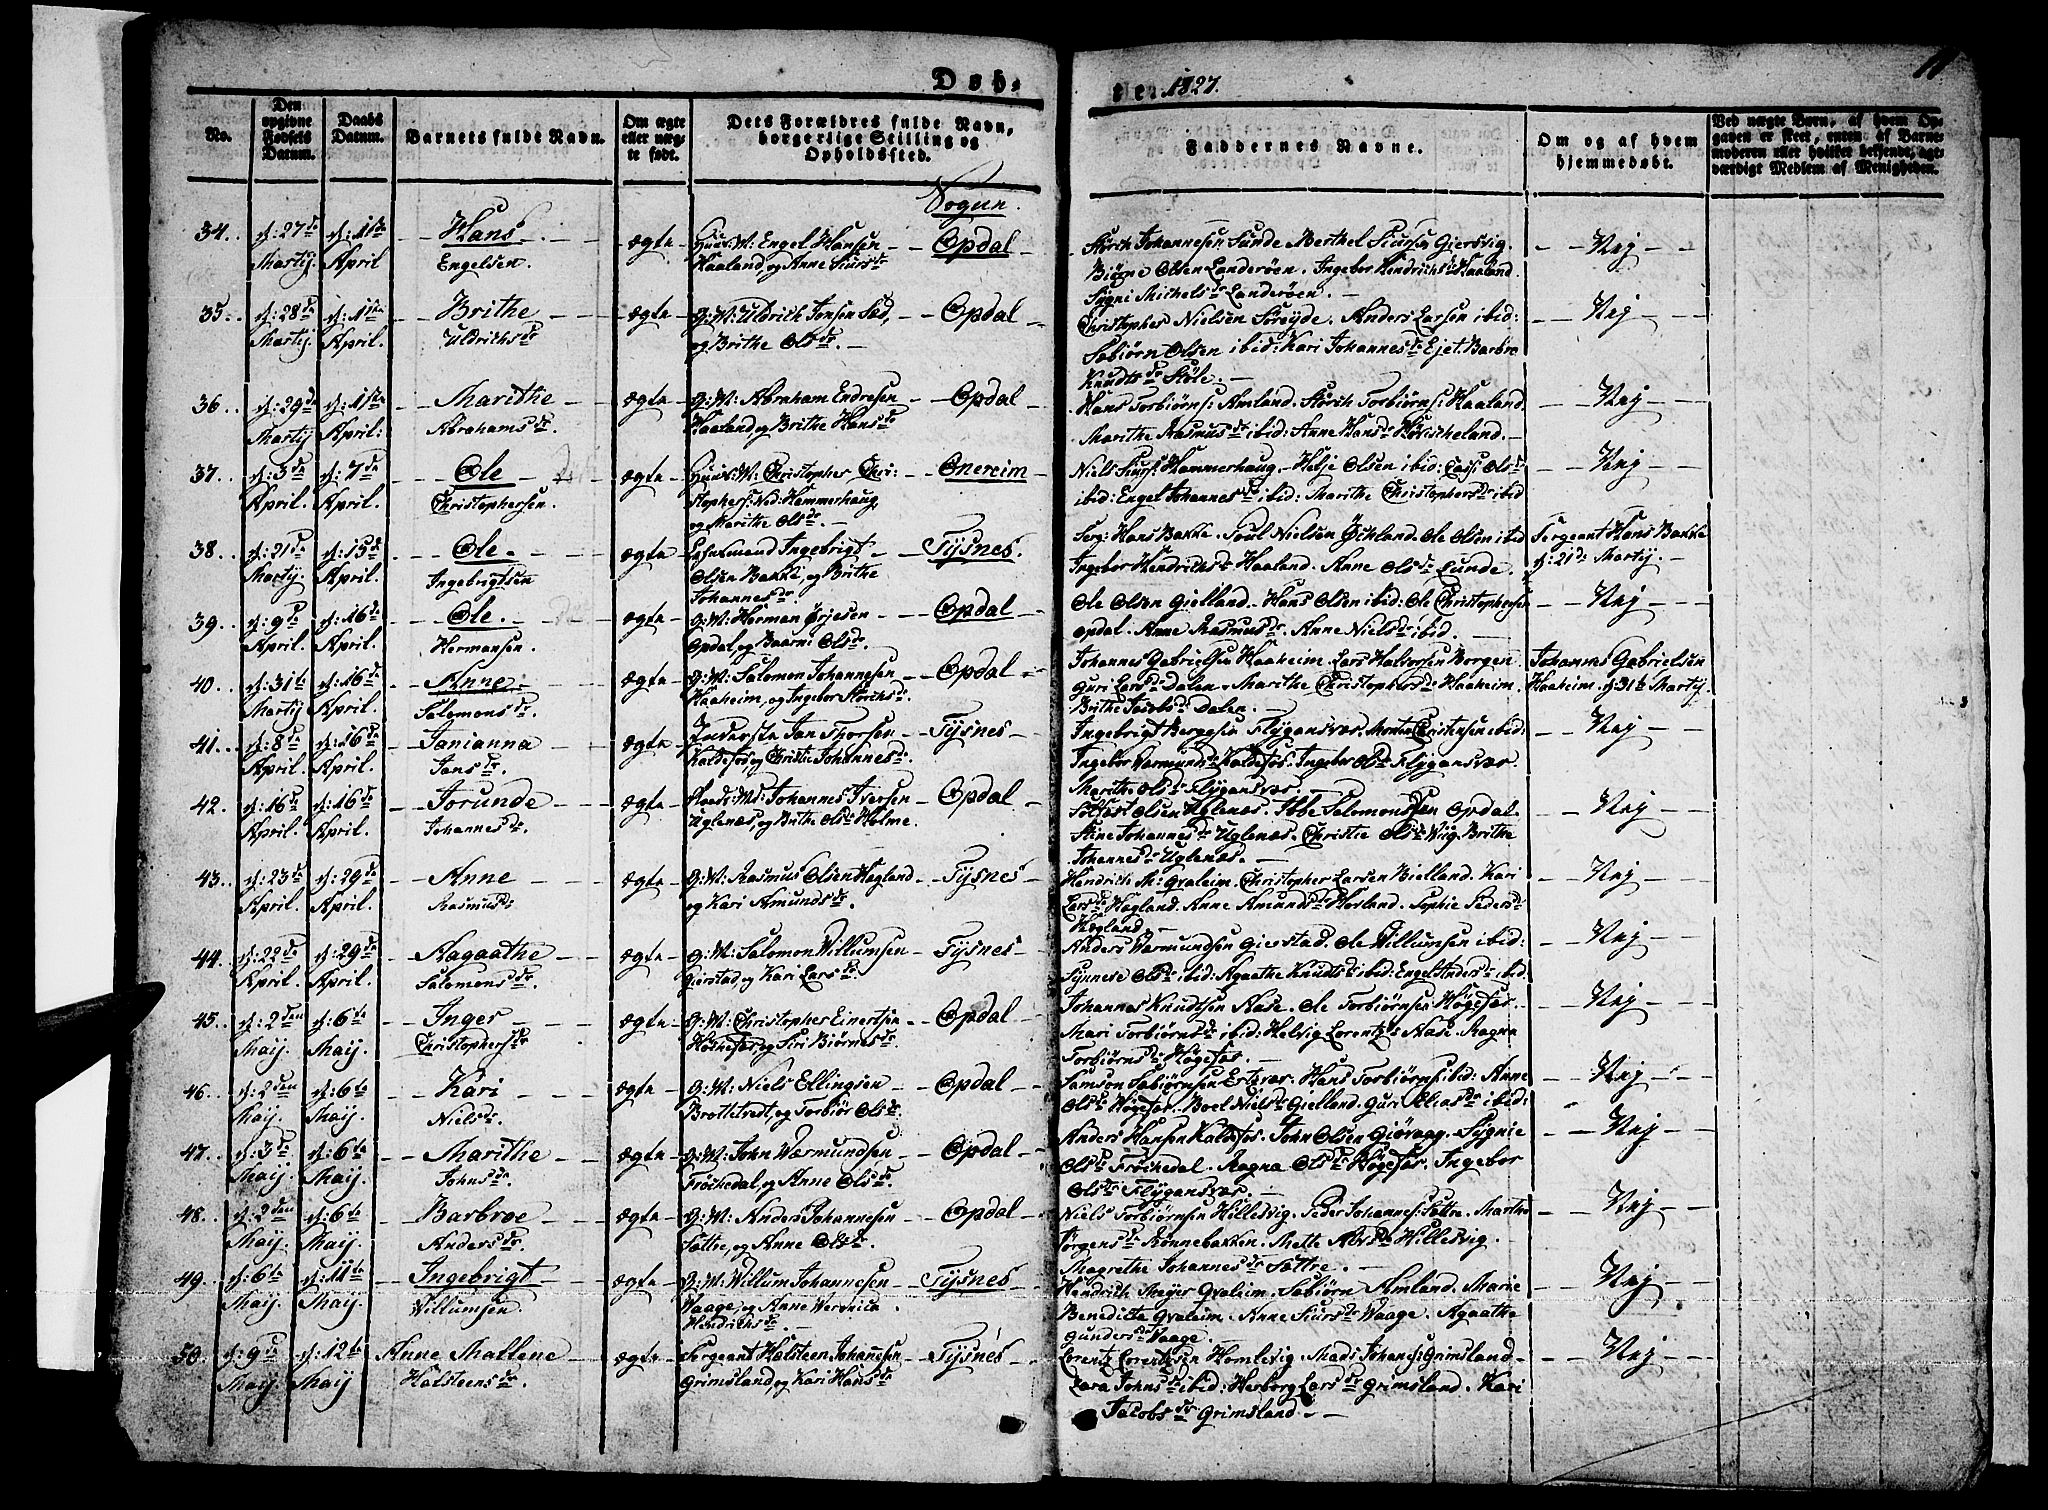 Døb-
te 1827.
11
No.
Den opgivne Fødsels Datum.
Daabs Datum.
Barnets fulde Navn.
Om ægte eller uægte født.
Dets Forældres fulde Navn, borgerlige Stilling og Opholdssted.
Faddernes Navne.
Om og af hvem hjemmedøbt.
Ved uægte Børn, af hvem Opgaven er skeet, enten af Barnemoderen eller hvilket beskende, agtværdigt Medlem af Menigheden.
Sogun.
34. d: 27de Martij. d: 1ste April Hans Engelsen. ægte Huus: M: Engel Hansen Haaland, og Anne Siursdr Opdal
Størch Johannesen Lunde. Berthel Siursen Giersvig.
Biørne Olsen Landerøen. Ingebor Hendrichsdr Haaland.
Sygni Michelsdr Landerøen. Nej
35. d: 28de Martij. d: 1ste April. Brithe Uldrichsdr ægte G: M: Uldrich Jonsen Sæd, og Brithe Olsdr. Opdal
Christopher Nielsen Søreyde. Anders Larsen ibid:
Sabiørn Olsen ibid: Kari Johannesdr Ejet. Barbro
Knudtsdr Støle. Nej
36. d: 29de Martij d: 1ste April: Marithe Abrahamsdr. ægte G: M: Abraham Endresen Haaland og Brithe Hansdr Opdal
Hans Torbiørns: Amland. Størch Torbiørns: Haaland
Marithe Rasmusdr ibid: Anne Hansdr Høvischeland. Nej
37. d: 3de April. d: 7de April. Ole Christophersen. ægte Huus: M: Christopher Christophers: Ned: Hammerhaug, og Marithe Olsdr. Onereim
Niels Siurs: Hammerhaug. Helje Olsen ibid: Lars: Ols:
ibid: Engel Johannesdr ibid: Marithe Christophersdr ibid Nej
38. d: 21de Martij. d: 15de April. Ole. Ingebrigtsen ægte Ingebrigt Olsen Bakke, og Brithe Johannesdr. Tysnes.
Serg: Hans Bakke. Poul Nielsen Øchland. Ole Olsen ibid
Ingebor Hendrichsdr Haaland. Anne Olsdr Lunde.
Sergeant Hans Bakke d: 21de Martij.
39. d: 9de April. d: 16de April. Ole. Hermansen. ægte G: M: Herman Ørjesen Opdal, og Baarni Olsdr. Opdal
Ole Olsen Gielland. Hans Olsen ibid: Ole Christophersen
Opdal. Anne Rasmusdr. Anne Nielsdr ibid. Nej
40. d: 31te Martij d: 16de April. Anne. Salomonsdr. ægte G: M: Salomon Johannesen Haaheim, og Ingebor Størchsdr. Opdal
Johannes Gabrielsen Haaheim. Lars Halvorsen Borgen.
Guri Larsdr Dalen. Marithe Christophersdr Haaheim.
Brithe Jacobsdr Dalen.
Johannes Gabrielsen Haaheim. d: 31te Martij.
41. d: 8de April. d: 16de April. Janianna Jansdr. ægte Inderste Jan Thorsen Kaldefos og Christi Johannesdr. Tysnes
Ingebrigt Børgesen Flygansvær. Morten Christensen ibid:
Ingebor Varmundsdr Kaldefos. Ingebor Olsdr Flygansvær.
Marithe Olsdr Flygansvær. Nej
42. d: 16de April. d: 16de April. Jorunde Johannesdr. ægte Huus: M: Johannes Iversen Uglenæs, og Brithe Olsdr Holme. Opdal
Solfæst Olsen Uglenæs. Ebbe Salomonsen Opdal.
Stine Johannesdr Uglenæs. Christie Olsdr Viig. Brithe
Johannesdr Uglenæs. Nej
43. d: 23de April. d: 29de April. Anne Rasmusdr ægte G: M: Rasmus Olsen Hægland og Kari Amundsdr. Tysnes
Hendrich M: Gvaleim. Christopher Larsen Bielland. Kari
Larsdr Hægland. Anne Amundsdr Horland. Sophie Pedersdr
Hægland. Nej
44. d: 22de April. d: 29de April. Aagaathe Salomonsdr. ægte G: M: Salomon Willumsen Gierstad, og Kari Larsdr. Tysnes
Anders Varmundsen Gierstad. Ole Willumsen ibid:
Synneve Olsdr ibid: Agaathe Knudtsdr ibid: Engel Andersdr ibid: Nej
45. d: 2den Maij. d: 6te Maij. Inger Christophersdr ægte G: M: Christopher Einertsen Høchefos, og Siri Biørnesdr. Opdal
Johannes Knudtsen Aase. Ole Torbiørnsen Høgefos.
Mari Torbiørnsdr ibid: Helvig Lorentzdr Aase. Ragna
Torbiørnsdr Høgefos. Nej
46. d: 2den Maij. d: 6te Maij. Kari Nielsdr. ægte G: M: Niels Ellingsen Brottetvet, og Torbiør Olsdr. Opdal
Samson Sabiørnsen Estevær. Hans Torbiørns: ibid: Anne
Olsdr Høgefos. Boel Nielsdr Gielland. Guri Eliasdr ibid: Nej
47. d: 3de Maij. d: 6te Maij. Marithe Johnsdr. ægte G: M: John Værmundsen Frøchedal, og Anne Olsdr. Opdal
Anders Hansen Kaldefos. John Olsen Giøvaag. Sygnie
Olsdr Frøchedal. Ragna Olsdr Høgefos. Ingebor
Olsdr Flygansvær. Nej
48. d: 2den Maij. d: 6te Maij. Barbroe Andersdr. ægte G: M: Anders Johannesen Sættre, og Anne Olsdr. Opdal
Niels Torbiørnsen Hillesvig. Peder Johannes: Sættre. Martha
Jørgensdr Rønnebakken. Mette Abrsdr Hillesvig.
Magrethe Johannesdr Sættre. Nej
49. d: 6te Maij. d: 11te Maij. Ingebrigt Willumsen ægte G: M: Willum Johannesen Waage, og Anne Weronica Hendrichsdr. Tysnes
Hendrich Meyer Gvaleim. Sabiørn Amland. Marie
Benedicta Gvaleim. Anne Siursdr Waage. Agaathe
Gundersdr Vaage. Nej
50. d: 9de Maij. d: 12te Maij Anne Mallene Halsteensdr. ægte Sergeant Halsteen Johannesen Grimsland og Kari Hansdr Tysnes
Lorentz Lorentzsen Homlevig. Mads Johanes: Grimsland
Lara Johnsdr ibid: Herborg Larsdr Grimsland. Kari
Jacobsdr Grimsland. Nej